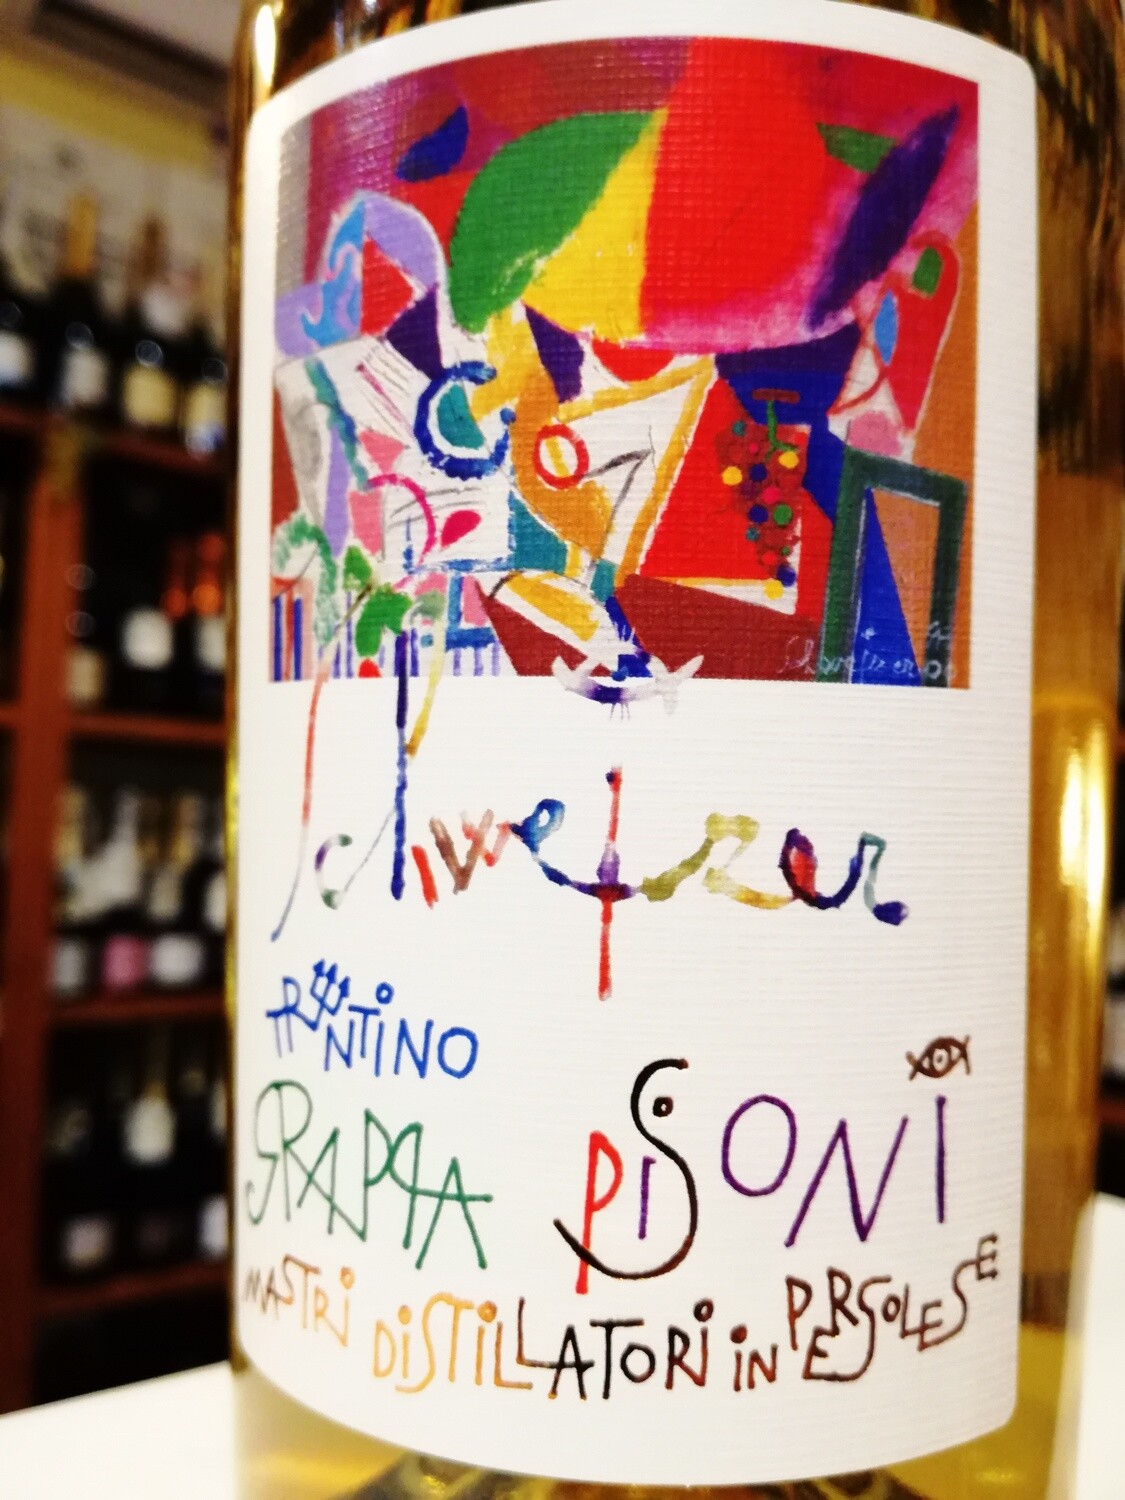 Schweizer 00
Schweizer
TRENTINO
GRAPPA PISONI
MASTRI DISTILLATORI IN PERGOLESE